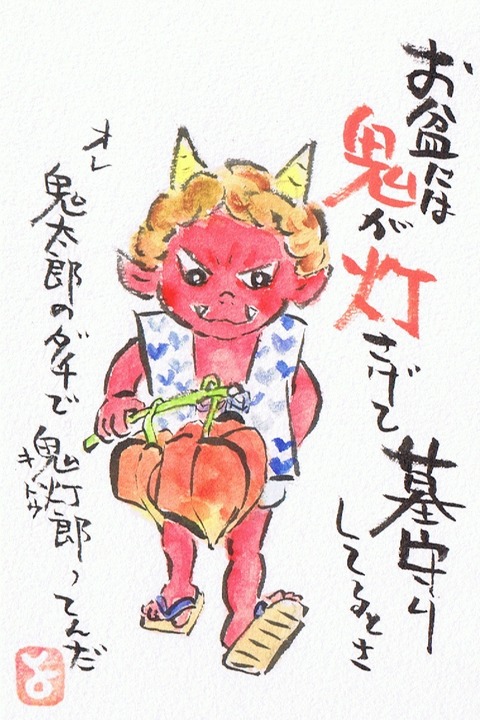 お盆には
鬼が灯さげて
墓守り
してるとさ
オレ
鬼太郎のダチで
鬼灯郎ってんだ
キトウ
と